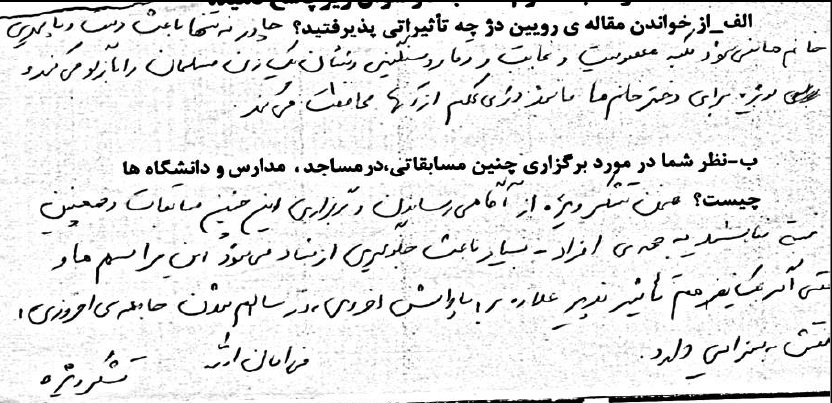 الف_از خواندن مقاله ی رویین دژ چه تأثیراتی پذیرفتید؟ چادر نه تنها باعث
خانم ها می شود بلکه معصومیت و نجابت و وقار و سنگینی و شأن یک زن مسلمان را بازگو می کند و
بویژه برای دختر خانم ها مانند دژی محکم از آنها محافظت می کند.
ب-نظر شما در مورد برگزاری چنین مسابقاتی،در مساجد، مدارس و دانشگاه ها
چیست؟ ضمن تشکر ویژه از آگاهی رساندن و برگزاری این چنین مسابقات و همچنین
به همه ی افراد - بسیار باعث جلوگیری از فساد می شود این مراسم ها و
حتی اگر یک نفر هم تأثیر بپذیرد علاوه بر پاداش اخروی، در سالم شدن جامعه ی امروزی،
نقش بسزایی دارد.
تشکر ویژه